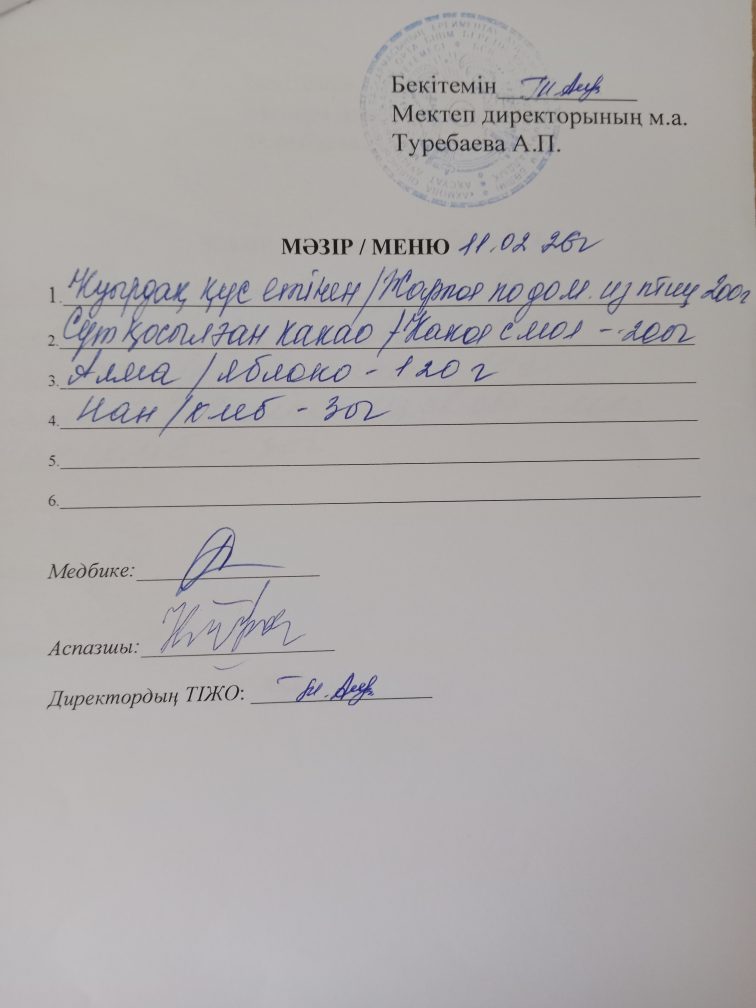 Бекітемін
Мектеп директорының м.а.
Туребаева А.П.
МӘЗІР / МЕНЮ 11.02 26г
1. Қуырдақ құс етінен / Жаркое по дом. из птиц 200г
2. Сүт қосылған какао / Какао с мол - 200г
3. Алма / яблоко - 120 г
4. Нан / хлеб - 30г
5.
6.
Медбике:
Аспазшы:
Директордың ТІЖО: